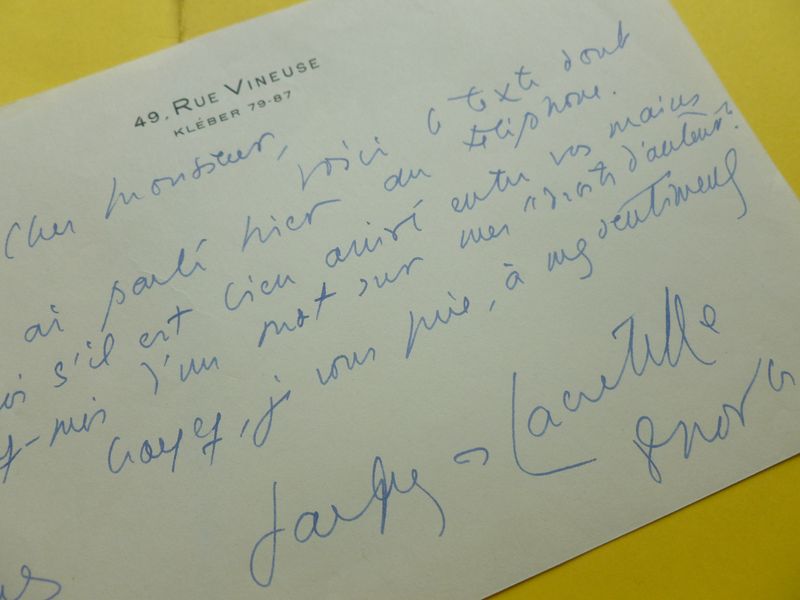 49, RUE VINEUSE
KLÉBER 79-87
Cher Monsieur,
voici le texte dont
ai parlé hier au téléphone.
s'il est bien arrivé entre vos mains
d'un mot sur mes "droits d'auteur".
Croyez, je vous prie, à mes sentiments
Jacques de Lacretelle